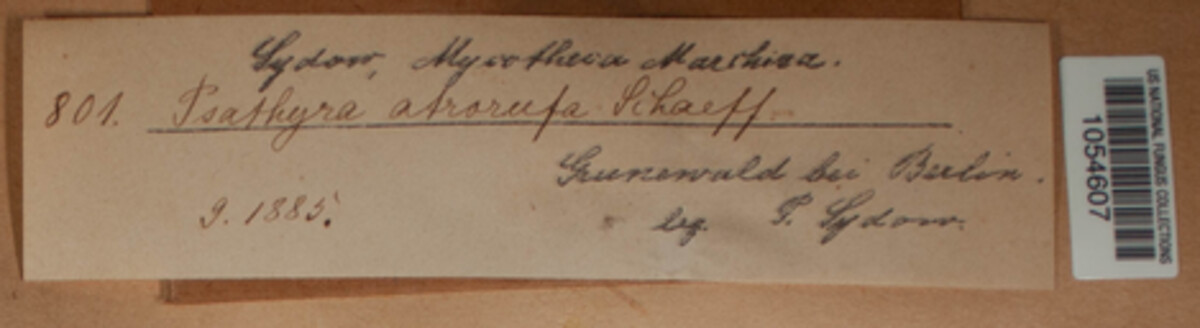 Sydow, Mycotheca Marchica.
801. Psathyra atrorufa Schaeff.
Grunewald bei Berlin.
9. 1885.
leg. P. Sydow.
US NATIONAL FUNGUS COLLECTIONS
1054607